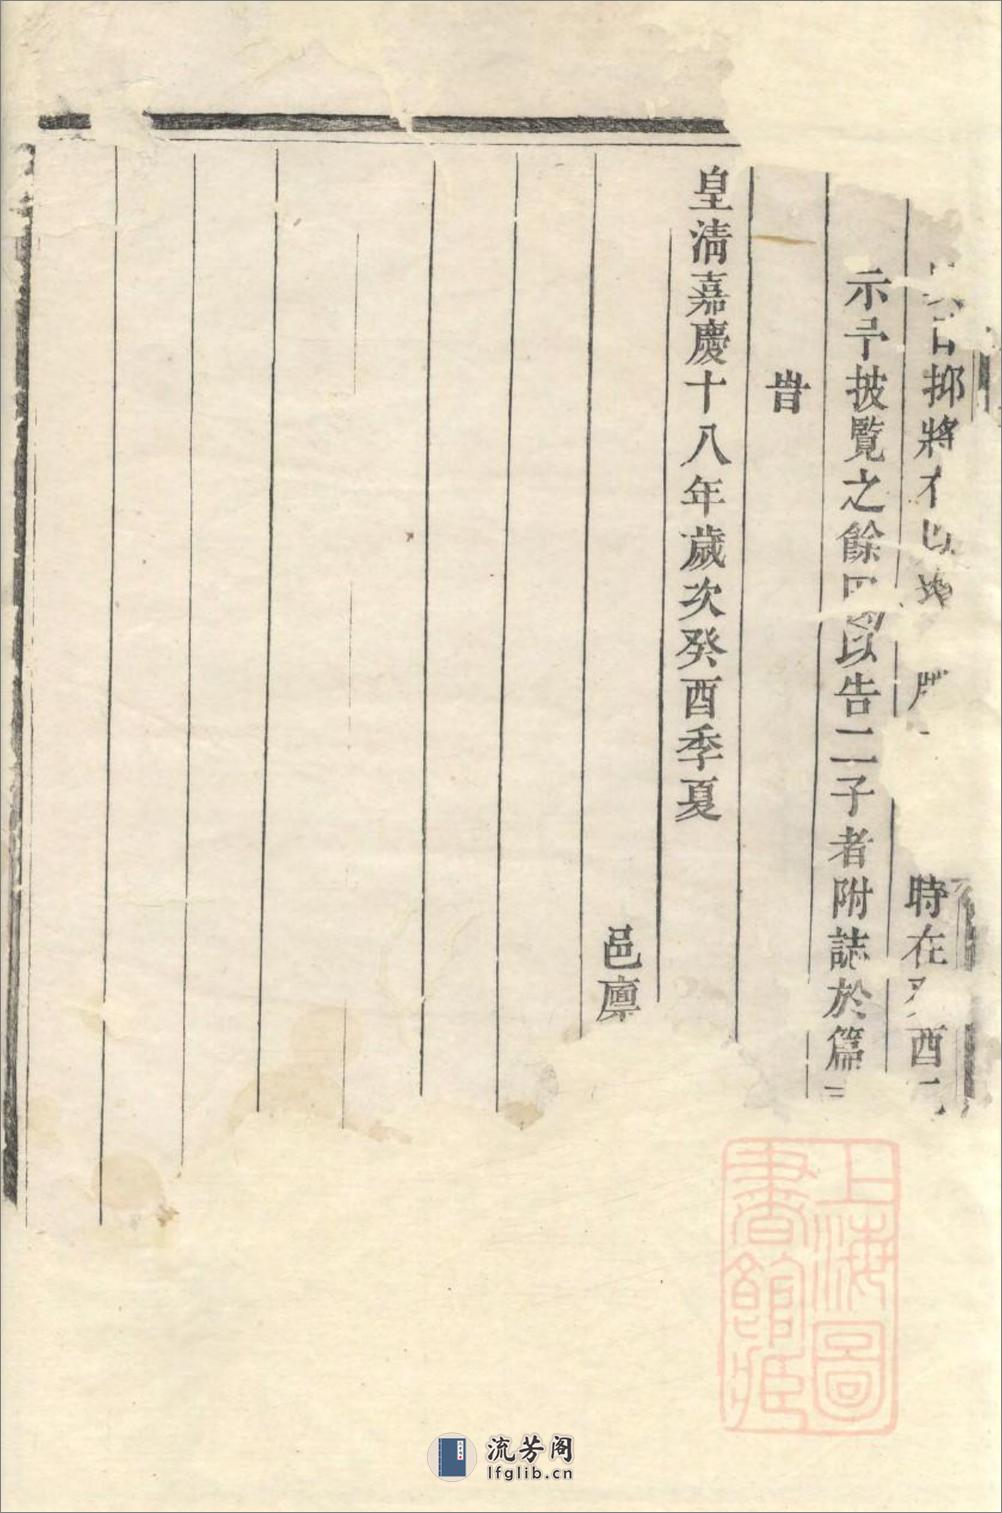 抑將
時在 酉
示予披覽之餘 以告二子者附誌於篇
旹
皇清嘉慶十八年歲次癸酉季夏
邑廩
上海圖
書館藏
流芳阁
lfglib.cn